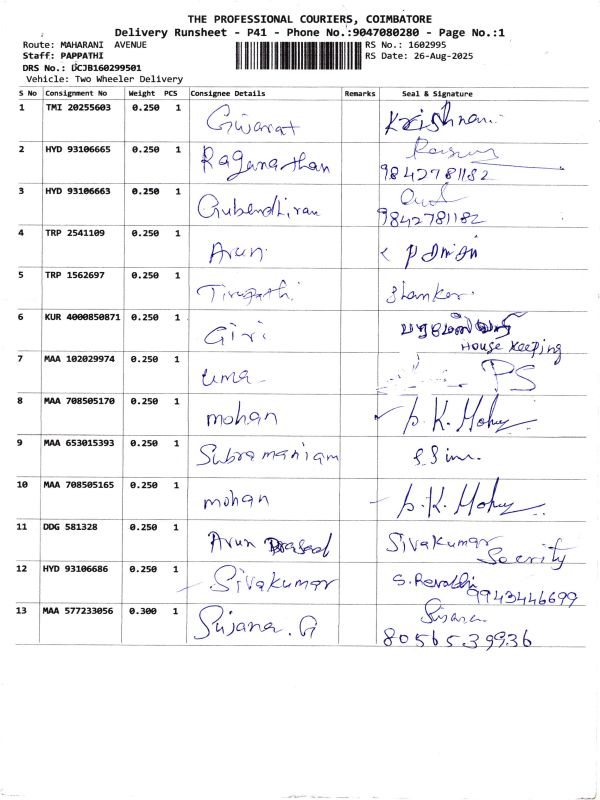 THE PROFESSIONAL COURIERS, COIMBATORE
Delivery Runsheet - P41 - Phone No.:9047080280 - Page No.:1
Route: MAHARANI AVENUE RS No.: 1602995
Staff: PAPPATHI RS Date: 26-Aug-2025
DRS No.: UCJB160299501
Vehicle: Two Wheeler Delivery
S No Consignment No Weight PCS Consignee Details Remarks Seal & Signature
1 TMI 20255603 0.250 1 Gujarat Krishnan
2 HYD 93106665 0.250 1 Raganathan
9842781182
3 HYD 93106663 0.250 1 Gubendhiran
9842781182
4 TRP 2541109 0.250 1 Arun
5 TRP 1562697 0.250 1 Tirupathi Shanker
6 KUR 4000850871 0.250 1 Giri
House Keeping
7 MAA 102029974 0.250 1 uma PS
8 MAA 708505170 0.250 1 mohan
9 MAA 653015393 0.250 1 Subramaniam
10 MAA 708505165 0.250 1 mohan
11 DDG 581328 0.250 1 Arun Prasad Sivakumar
Secrity
12 HYD 93106686 0.250 1 Sivakumar S. Revathi
9943446699
13 MAA 577233056 0.300 1 Sujana. G Sujana
8056539936